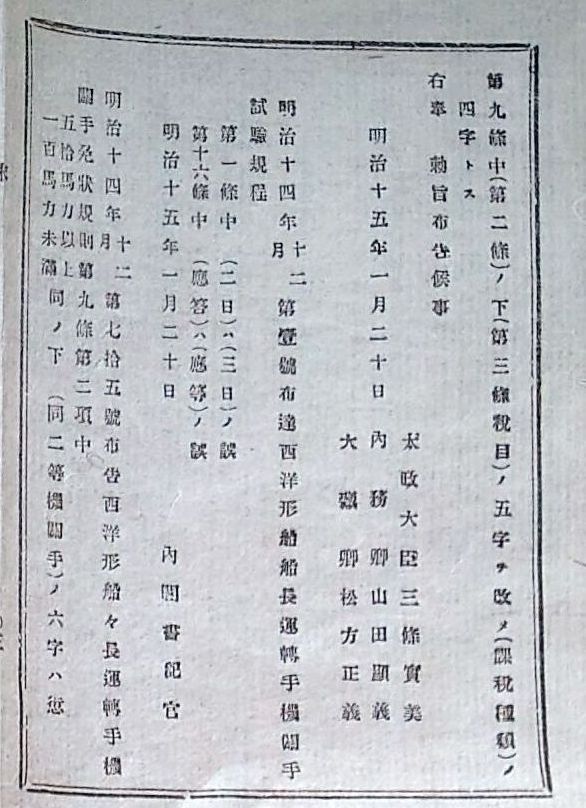 第九條中(第二條)ノ下(第三條稅目)ノ五字ヲ改メ(課稅種類)ノ
四字トス
右奉 勅旨布告候事
明治十五年一月二十日
太政大臣三條實美
內務卿山田顯義
大藏卿松方正義
明治十四年十二月第壹號布達西洋形船船長運轉手機關手
試驗規程
第一條中(二日)ハ(三日)ノ誤
第十六條中(應答)ハ(應等)ノ誤
明治十五年一月二十日
內閣書記官
明治十四年十二月第七拾五號布告西洋形船々長運轉手機
關手免狀規則第九條第二項中
五拾馬力以上
一百馬力未滿同ノ下(同二等機關手)ノ六字ハ愆